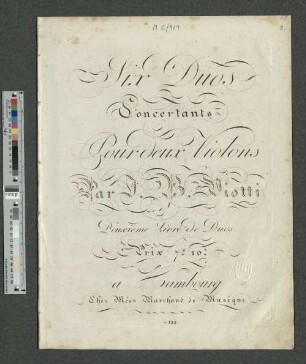 M C/919
Six Duos
Concertants
Pour deux Violons
Par J. B. Viotti
Deuxième Livre de Duos
Prix 10
a Hambourg
Chez Mées Marchand de Musique
122